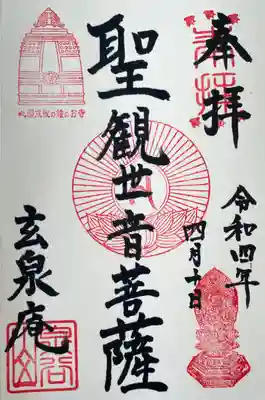 奉拝
令和四年
四月十日
聖観世音菩薩
玄泉庵